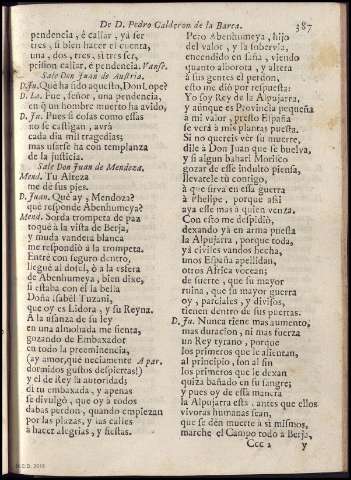 De D. Pedro Calderon de la Barca.
387
pendencia, è callar, yà ser
tres, si bien hazer el cuenta,
una, dos, tres, si tres ser,
peisson callar, è pendencia. Vanse.
Sale Don Juan de Austria.
D. Ju. Què ha sido aquesto, Don Lope?
D. Lo. Fue, señor, una pendencia,
en q̃ un hombre muerto ha avido,
D. Ju. Pues si cosas como essas
no se castigan, avrà
cada dia mil tragedias;
mas usarse ha con templanza
de la justicia.
Sale Don Juan de Mendoza.
Mend. Tu Alteza
me dè sus pies.
D. Juan. Què ay, Mendoza?
què responde Abenhumeya?
Mend. Sorda trompeta de paz
toquè à la vista de Berja,
y muda vandera blanca
me respondiò à la trompeta.
Entrè con seguro dentro,
lleguè al dosel, ò à la esfera
de Abenhumeya, bien dixe,
si estaba con èl la bella
Doña Isabèl Tuzani,
que oy es Lidora, y su Reyna.
A la usanza de su ley
en una almohada me sienta,
gozando de Embaxador
en todo la preeminencia,
(ay amor, què neciamente A par.
dormidos gustos despiertas!)
y èl de Rey la autoridad;
dì tu embaxada, y apenas
se divulgò, que oy à todos
dabas perdon, quando empiezan
por las plazas, y las calles
à hacer alegrias, y fiestas.
Pero Abenhumeya, hijo
del valor, y la sobervia,
encendido en saña, viendo
quanto alborota, y altera
à sus gentes el perdon,
esto me diò por respuesta:
Yo soy Rey de la Alpujarra,
y aunque es Provincia pequeña
à mi valor, presto España
se verà à mis plantas puesta.
Si no quereis ver su muerte,
dile à Don Juan que se buelva,
y si algun bahari Morisco
gozar de esse indulto piensa,
llevatele tù contigo,
à que sirva en essa guerra
à Phelipe, porque assi
aya esse mas à quien venza.
Con esto me despidiò,
dexando yà en arma puesta
la Alpujarra, porque toda,
yà civiles vandos hecha,
unos España apellidan,
otros Africa vocean;
de suerte, que su mayor
ruina, que su mayor guerra
oy, parciales, y divisos,
tienen dentro de sus puertas.
D. Ju. Nunca tiene mas aumento,
mas duracion, ni mas fuerza
un Rey tyrano, porque
los primeros que le alientan,
al principio, son al sin
los primeros que le dexan
quizà bañado en su sangre;
y pues oy de essa manera
la Alpujarra està, antes que ellos
vivoras humanas sean,
que se dèn muerte à sì mismos,
marche el Campo todo à Berja,
Ccc 2
y